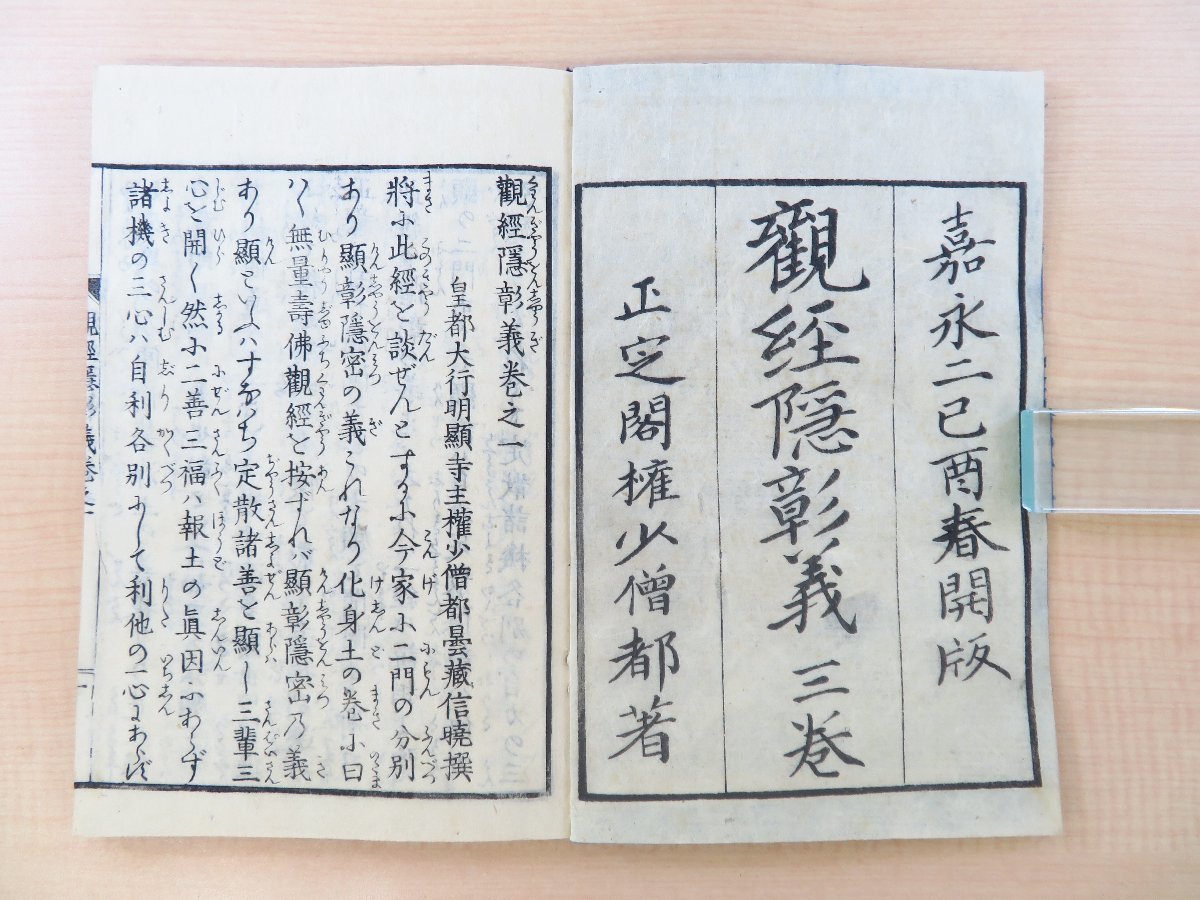 嘉永二己酉春開版
觀經隱彰義 三卷
正定閣權少僧都著
觀經隱彰義卷之
皇都大行明顯寺主權少僧都曇藏信曉撰
將に此經を談ぜんとするに今家に二門の分別
あり顯彰隱密の義これなり化身土の卷に曰
く無量壽佛觀經を按ずれバ顯彰隱密乃義
あり顯といふハすなハち定散諸善を顯し三輩三
心を開く然に二善三福ハ報土の眞因にあらず
諸機の三心ハ自利各別にして利他の一心にあらず